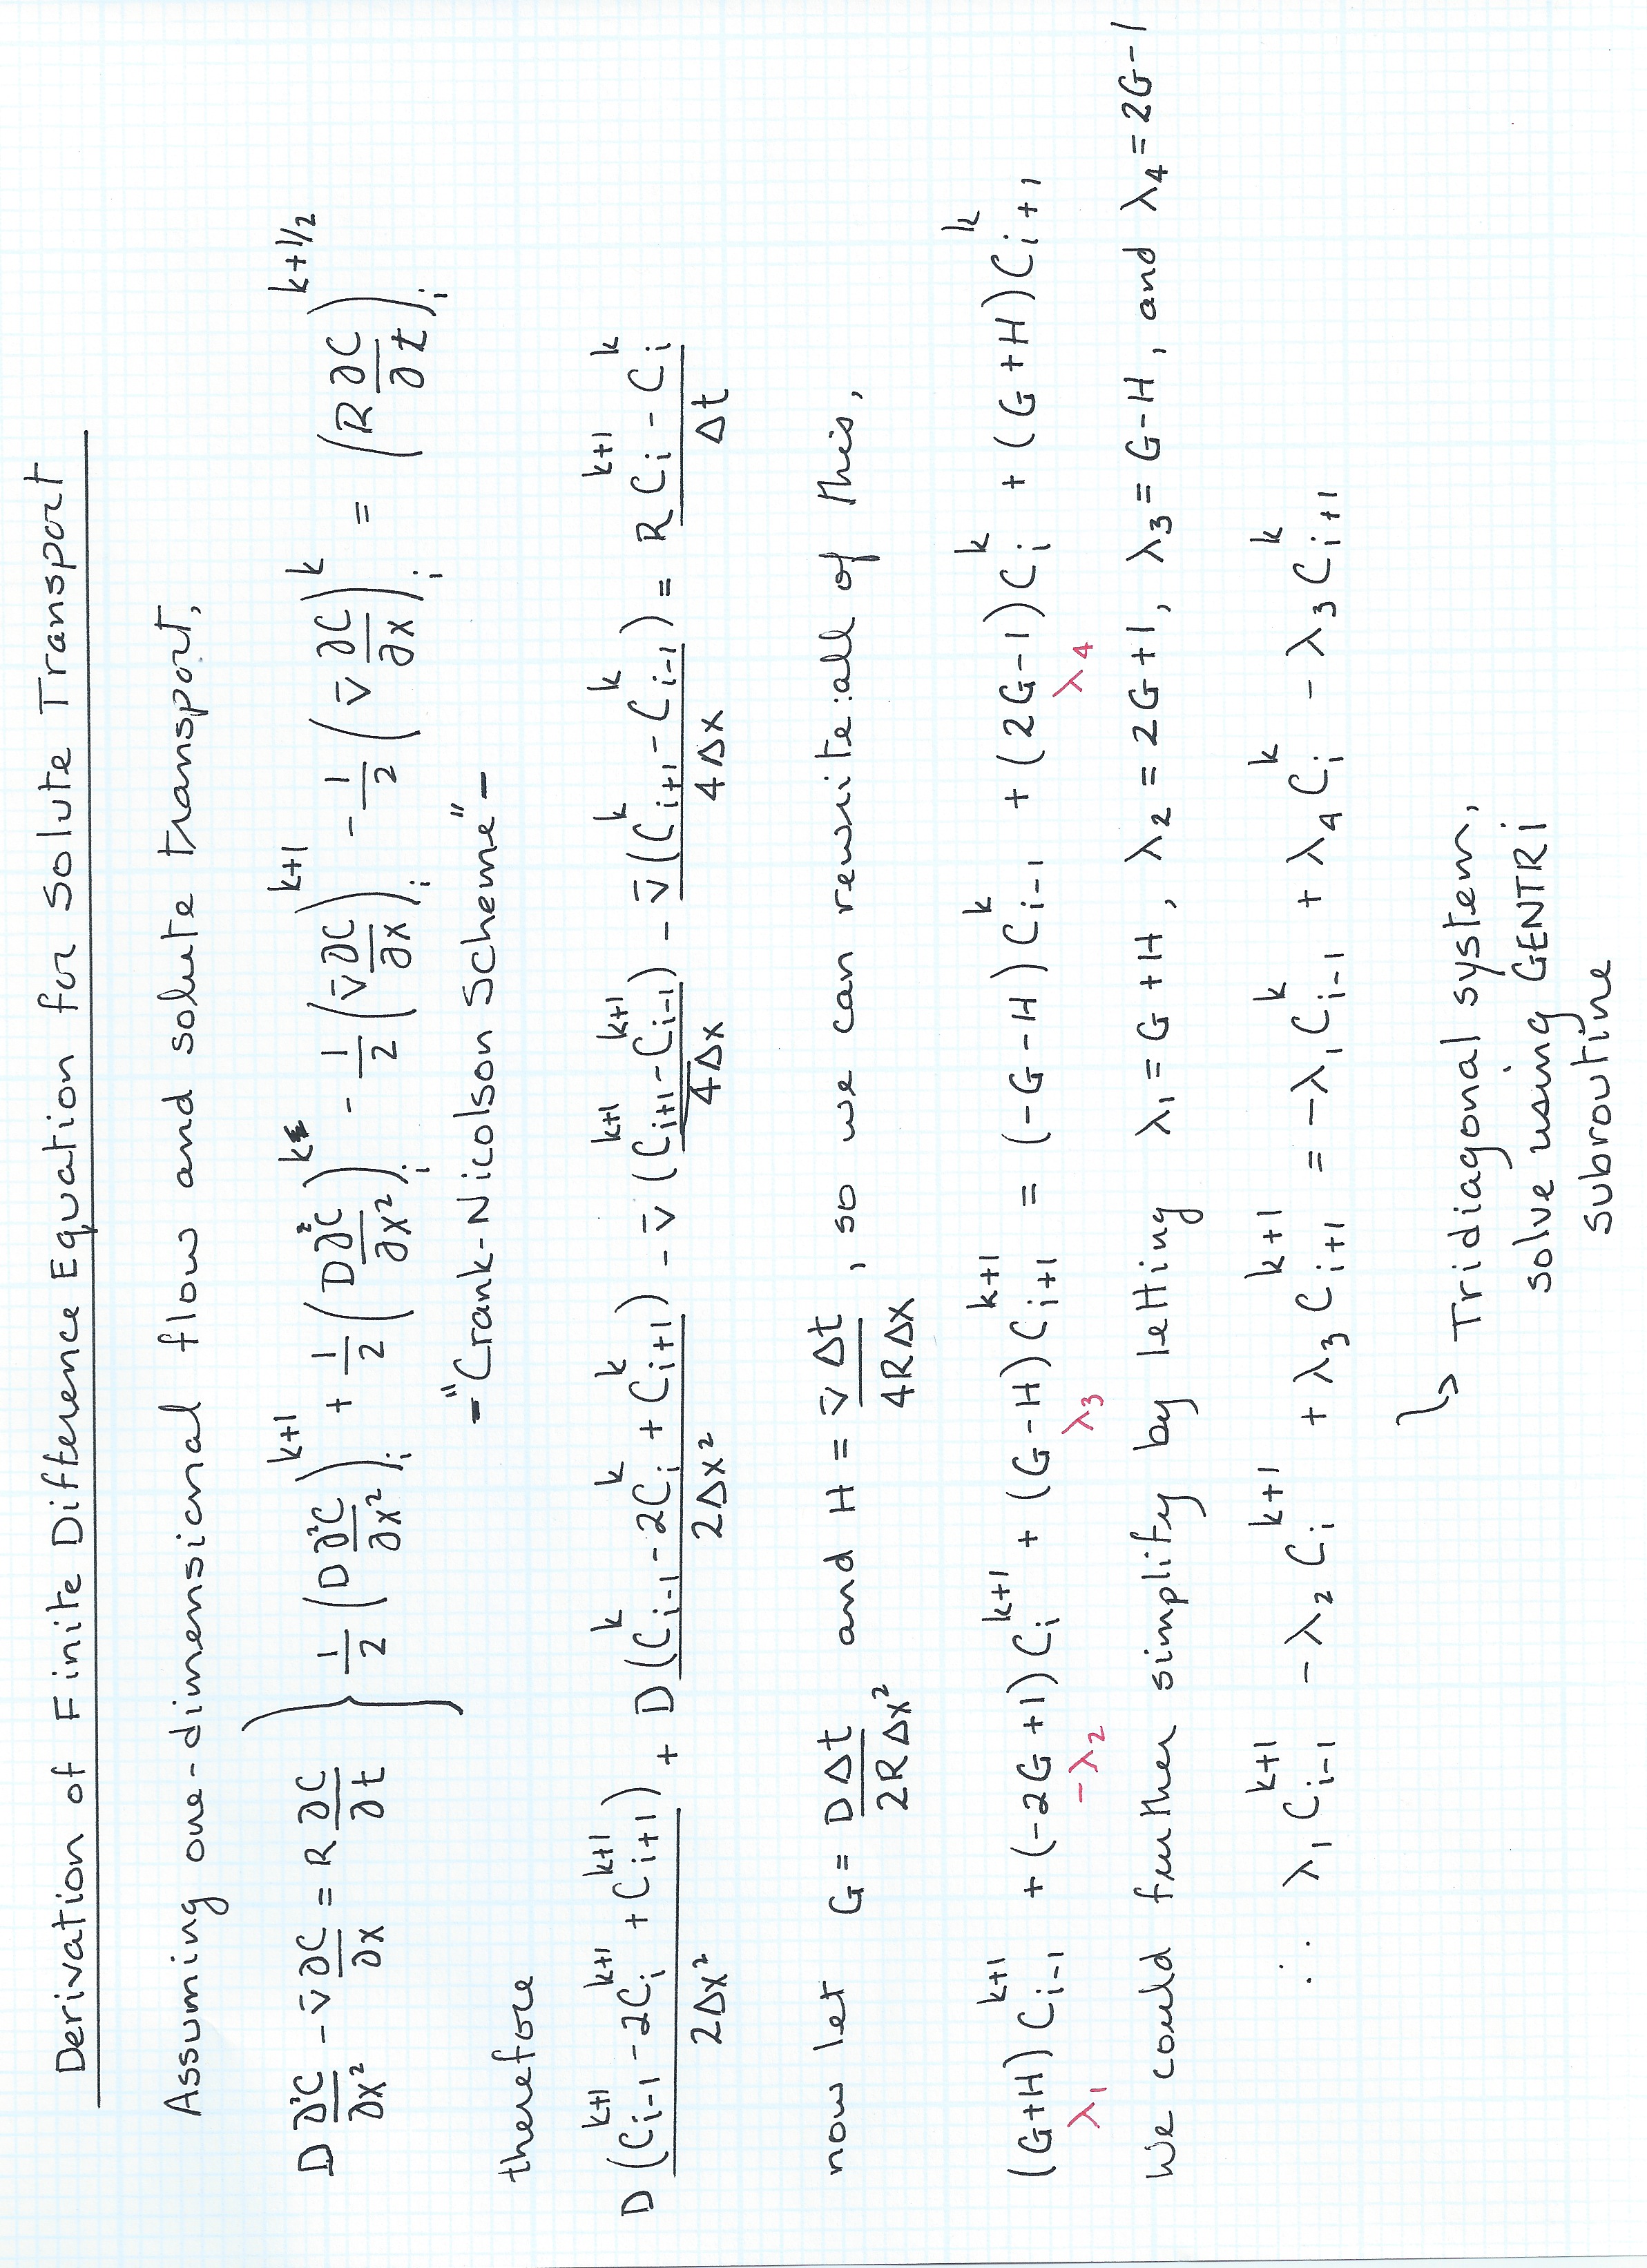 Derivation of Finite Difference Equation for Solute Transport
Assuming one-dimensional flow and solute transport,
D ∂²C/∂x² - v̄ ∂C/∂x = R ∂C/∂t } 1/2 (D ∂²C/∂x²)ᵢ^(k+1) + 1/2 (D ∂²C/∂x²)ᵢ^k - 1/2 (v̄ ∂C/∂x)ᵢ^(k+1) - 1/2 (v̄ ∂C/∂x)ᵢ^k = (R ∂C/∂t)ᵢ^(k+1/2)
-"Crank-Nicolson Scheme"-
therefore
D (C_{i-1}^{k+1} - 2C_i^{k+1} + C_{i+1}^{k+1})/2Δx² + D (C_{i-1}^k - 2C_i^k + C_{i+1}^k)/2Δx² - v̄ (C_{i+1}^{k+1} - C_{i-1}^{k+1})/4Δx - v̄ (C_{i+1}^k - C_{i-1}^k)/4Δx = R C_i^{k+1} - C_i^k/Δt
now let G = DΔt/2RΔx² and H = v̄Δt/4RΔx , so we can rewrite :all of this,
(G+H) C_{i-1}^{k+1} + (-2G+1) C_i^{k+1} + (G-H) C_{i+1}^{k+1} = (-G-H) C_{i-1}^k + (2G-1) C_i^k + (G+H) C_{i+1}^k
λ₁ -λ₂ λ₃ λ₄
We could further simplify by letting λ₁ = G+H, λ₂ = 2G+1, λ₃ = G-H, and λ₄ = 2G-1
∴ λ₁ C_{i-1}^{k+1} - λ₂ C_i^{k+1} + λ₃ C_{i+1}^{k+1} = -λ₁ C_{i-1}^k + λ₄ C_i^k - λ₃ C_{i+1}^k
↳ Tridiagonal system,
solve using GENTRi
subroutine